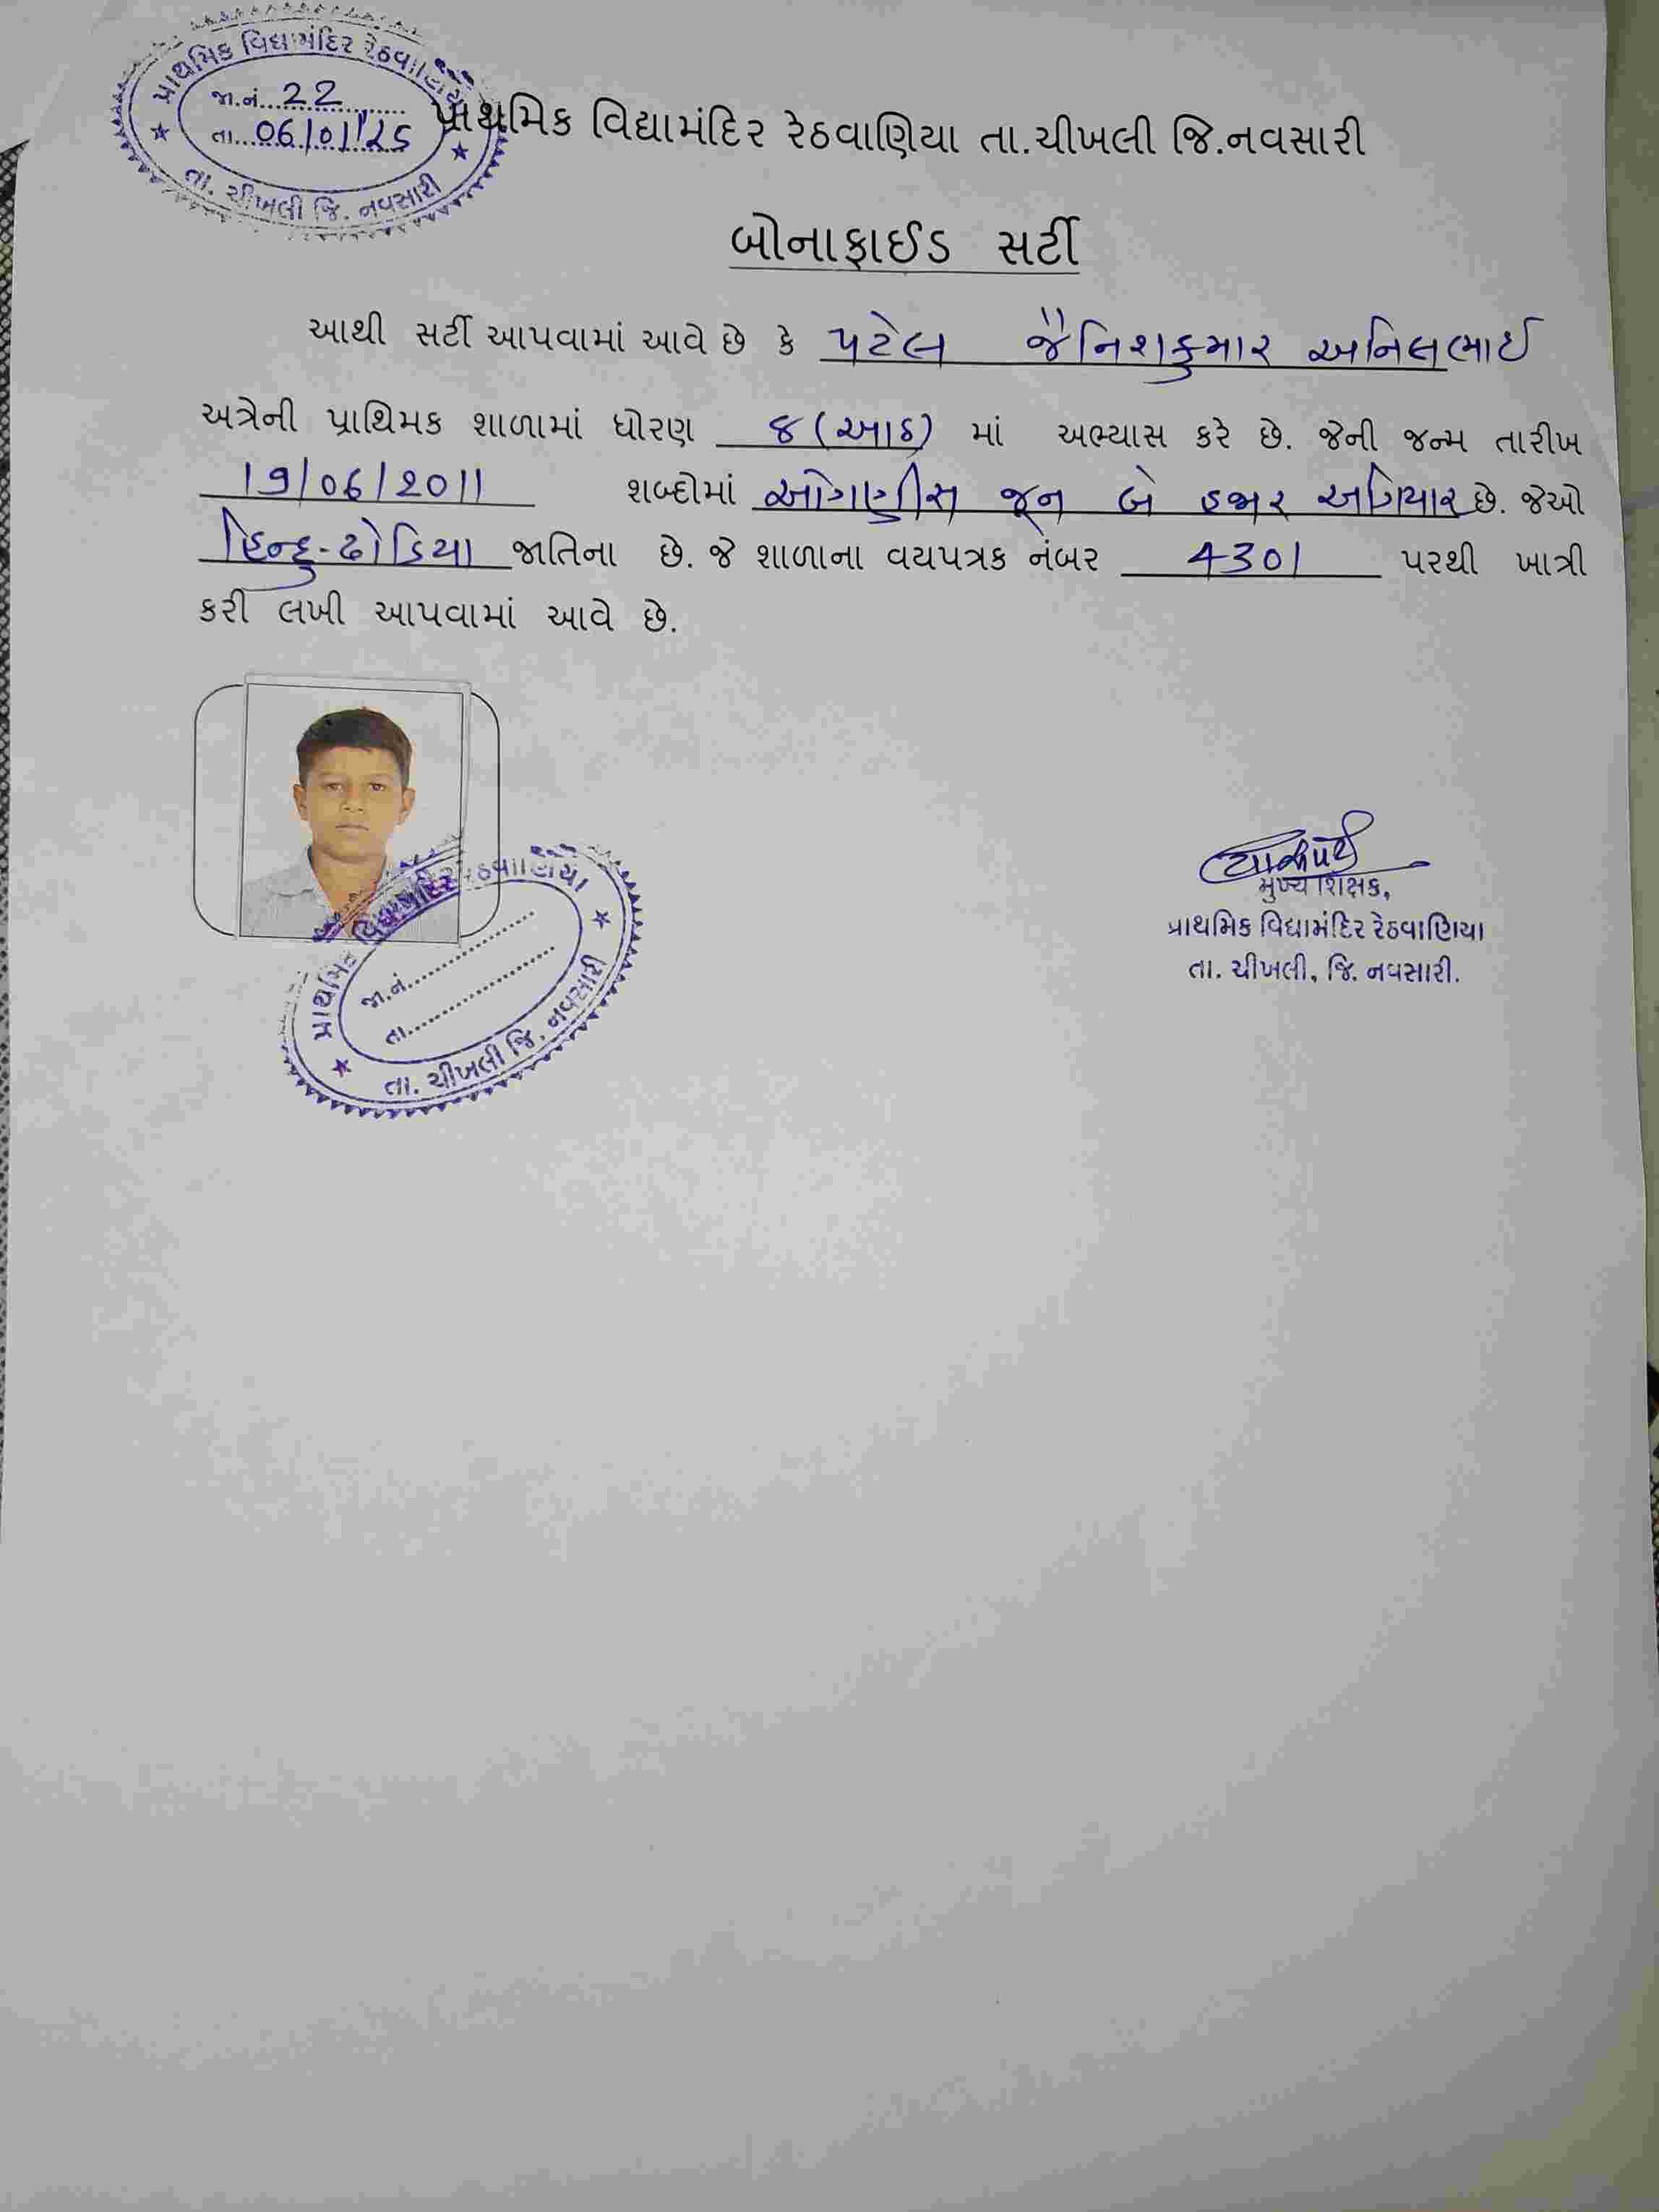 પ્રાથમિક વિદ્યામંદિર રેઠવાણિયા
જા.નં...22
તા...06/01/25
તા. ચીખલી જિ. નવસારી
પ્રાથમિક વિદ્યામંદિર રેઠવાણિયા તા.ચીખલી જિ.નવસારી
બોનાફાઈડ સર્ટી
આથી સર્ટી આપવામાં આવે છે કે પટેલ જૈનિશકુમાર અનિલભાઈ
અત્રેની પ્રાથિમક શાળામાં ધોરણ ૮ (આઠ) માં અભ્યાસ કરે છે. જેની જન્મ તારીખ
19/06/2011 શબ્દોમાં ઓગણીસ જૂન બે હજાર અગિયાર છે. જેઓ
હિન્દુ-ઢોડિયા જાતિના છે. જે શાળાના વયપત્રક નંબર 4301 પરથી ખાત્રી
કરી લખી આપવામાં આવે છે.
પ્રાથમિક વિદ્યામંદિર રેઠવાણિયા
જા.નં.
તા.
તા. ચીખલી જિ. નવસારી
મુખ્ય શિક્ષક,
પ્રાથમિક વિદ્યામંદિર રેઠવાણિયા
તા. ચીખલી, જિ. નવસારી.